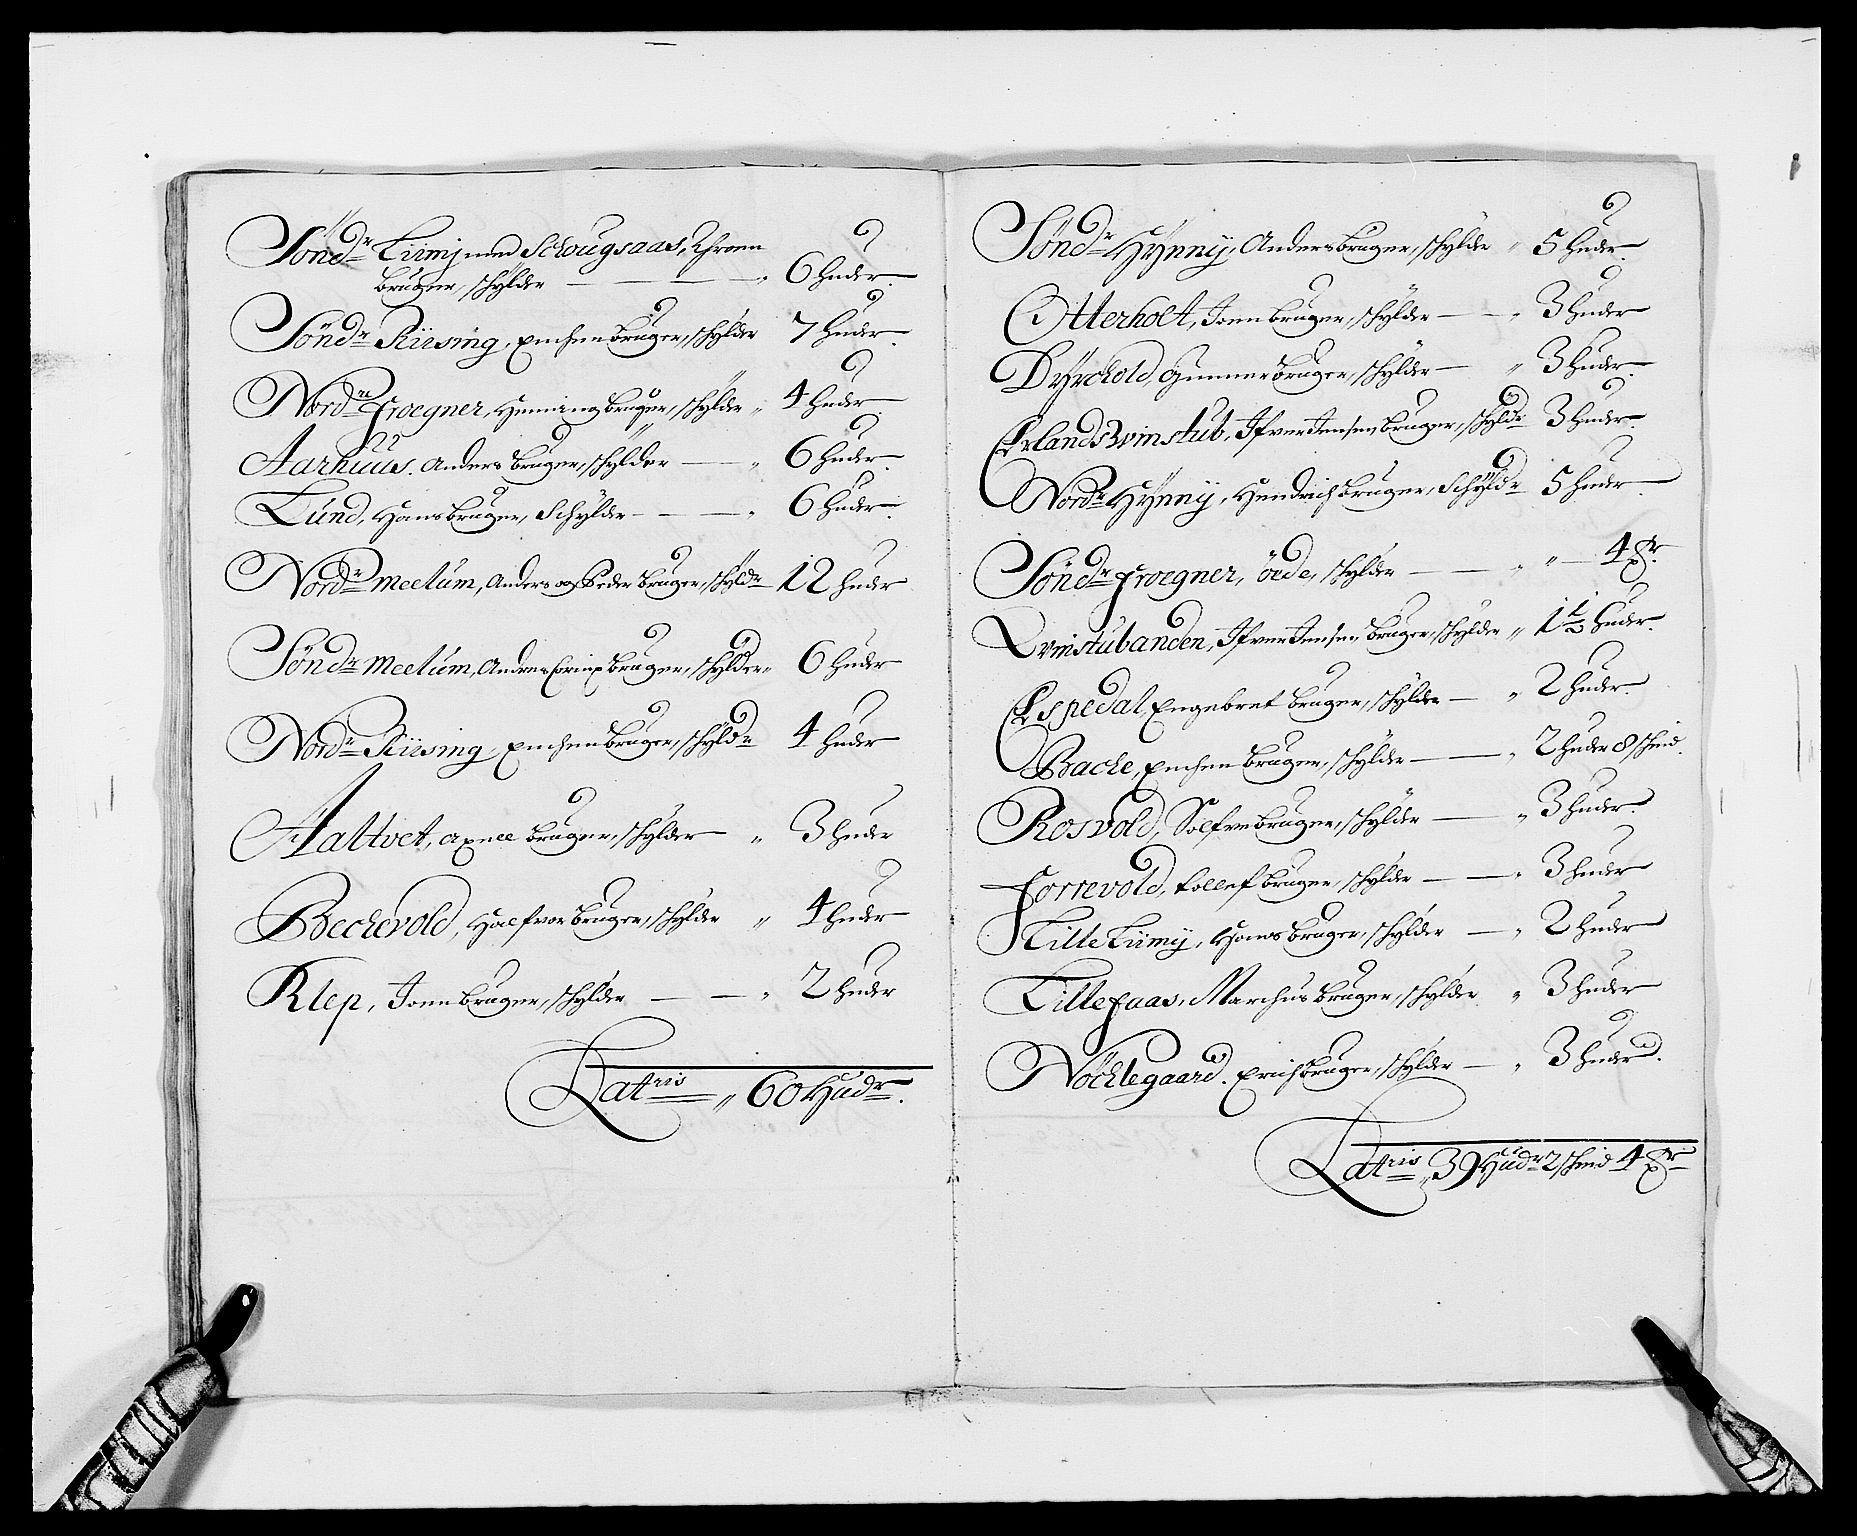 Sönd:r Liimj med Schougsaas, Thronn
bruger, schÿlder — — — „ 6 huder.
Sönd:r Riising, Enchen bruger, schÿlder 7 huder.
Nord:re froegner, Henning bruger, schÿlder „ 4 huder.
Aarhuus. Anders bruger, schÿlder — — „ 6 huder.
Lund, Hans bruger, Schÿlder — — — „ 6 huder.
Nord:r meelum, Anders og Peder bruger, schÿld:r 12 huder
Sönd:r meelum, Andres bruger, schÿlder „ 6 huder
Nord:r Riising, Enchen bruger, schÿld:r 4 huder
Aaltvet, axell bruger, schÿlder — „ 3 huder
Bechevold, Halfvor bruger, schÿlder „ 4 huder
Klep, Joen bruger, schÿlder — — „ 2 huder
Lat:ris „ 60 Hud:r.
Sönd:r Hÿnnÿ, Anders bruger, schÿlder „ 5 huder.
Otterholt, Joen bruger, schÿlder — — „ 3 huder
Dÿrchold, Gunner bruger, schÿlder — „ 3 huder.
Erlands Qvinstub, Ifver Jensen bruger, schÿld:r 3 huder.
Nord:r Hÿnnÿ, Hendrich bruger, Schÿld:r 5 huder.
Sönd:r froegner, öde, schÿlder — — „ „ — 4 
Qvinstubanden, Ifver Jensen bruger, schÿlder „ 1 1/2 huder.
Espedal, Engebret bruger, schÿlder — „ 2 huder.
Bache, Enchen bruger, schÿlder — — „ 2 huder 8 schind.
Rosvold, Solfve bruger, schÿlder — „ 3 huder.
forrevold, tollef bruger, schÿlder — — „ 3 huder
Lille Liimÿ, Hans bruger, schÿlder — „ 2 huder
Lille faas, Marchus bruger, schÿlder „ 3 huder
Nöchlegaard. Erich bruger, schÿlder — „ 3 huder.
Lat:ris „ 39 Hud:r 2 schind 4